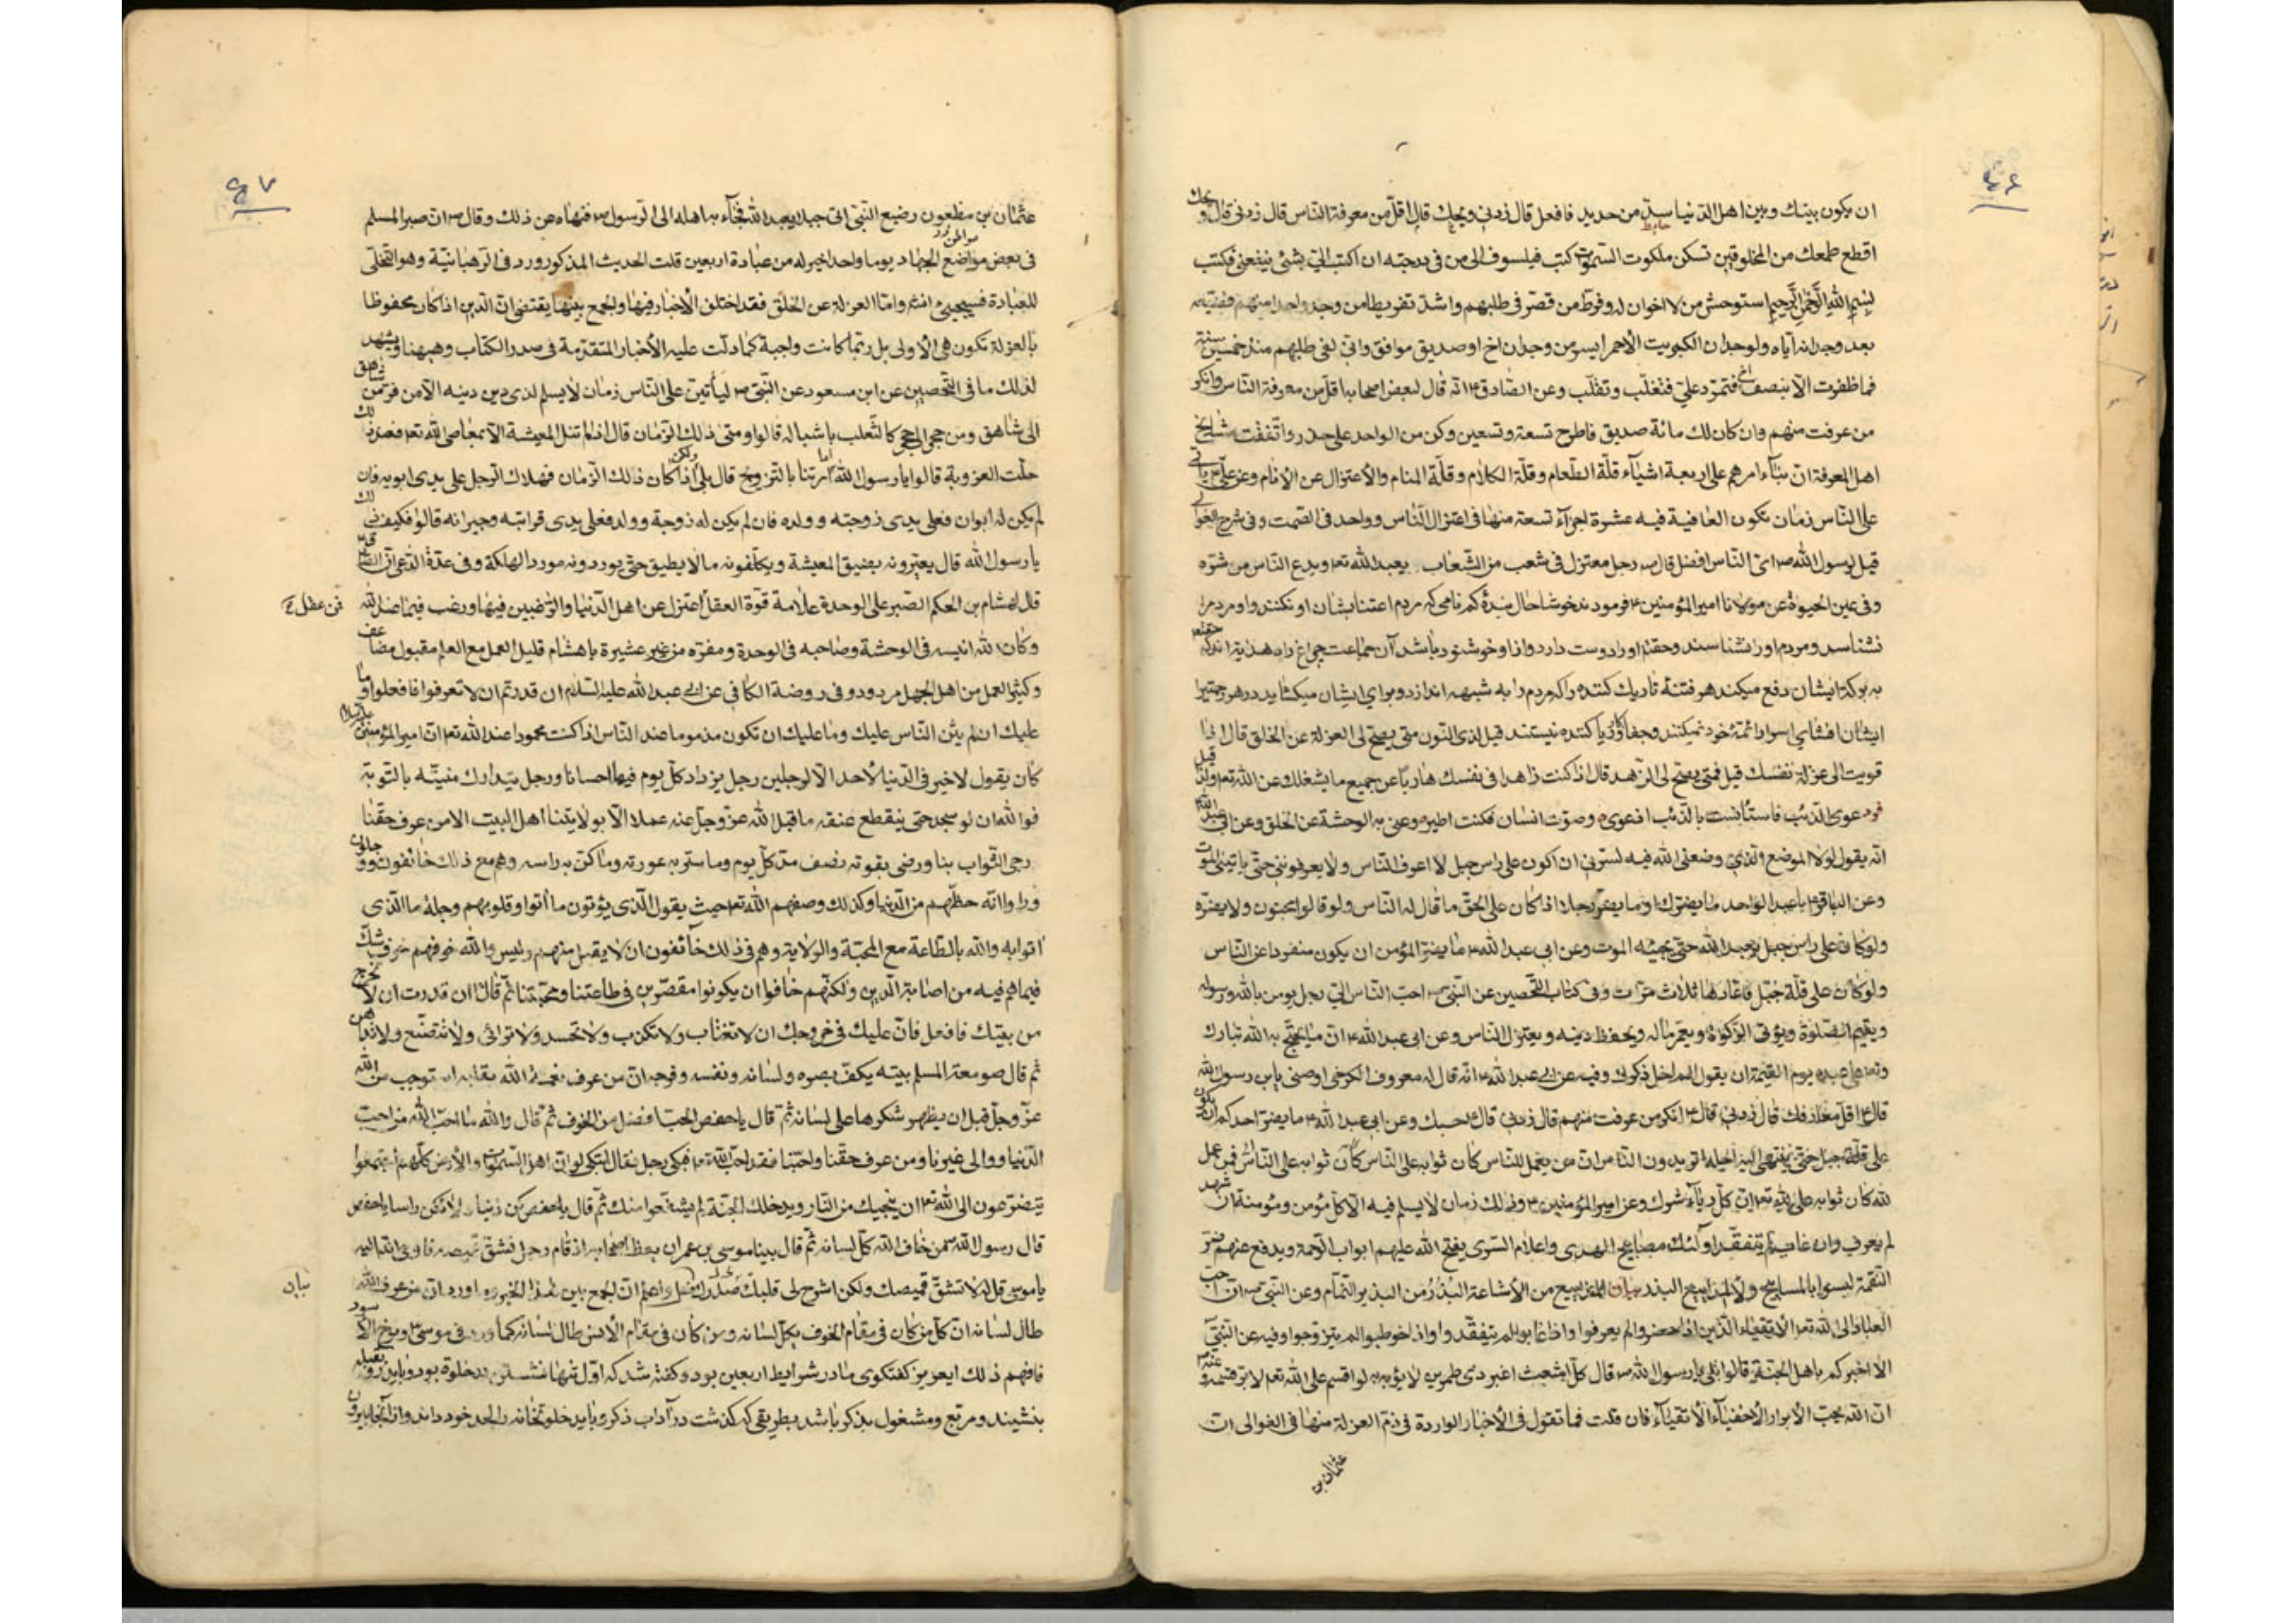 ان يكون بينك وبين اهل الدنيا سدّ من حديد فافعل قال زدنى ويحك قال اقلّ من معرفة الناس قال زدنى قال ويحك
حايط
اقطع طمعك من المخلوقين تسكن ملكوت السموات كتب فيلسوف الى من فى درجته ان اكتب الىّ بشئ ينفعنى فكتب
بسم الله الرحمن الرحيم استوحش من لا اخوان له وفرط من قصّر فى طلبهم واشدّ تفريطا من وجد واحدا منهم وضيّعه
بعد وجدانه اياه ولوجدان الكبريت الأحمر ايسر من وجدان اخ او صديق موافق وانى لفى طلبهم منذ خمسين سنة
فما ظفرت الّا بنصف اخ فتمرّد علىّ فتغلّب وتقلّب وعن الصادق ع انه قال لبعض اصحابه اقلّ من معرفة الناس وانكر
من عرفت منهم وان كان لك مائة صديق فاطرح تسعة وتسعين وكن من الواحد على حذر واتّفقت مشايخ
اهل المعرفة انّ بناء امرهم على اربعة اشياء قلّة الطعام وقلّة الكلام وقلّة المنام والأعتزال عن الأنام وعن علىّ ع يأتى
على الناس زمان تكون العافية فيه عشرة اجزاء تسعة منها فى اعتزال الناس وواحد فى الصمت وفى شرح الغوالى
قيل لرسول الله ص اىّ الناس افضل قال ص رجل معتزل فى شعب من الشعاب يعبد الله تعا ويدع الناس من شرّه
وفى عين الحيوة عن مولانا امير المؤمنين ع فرمودند خوشا حال بندهٔ كم نامى كه مردم اعتنا بشان او نكنند واو مردم را
نشناسد ومردم او را نشناسند وحقتعا او را دوست دارد وازو خوشنود باشد آن جماعت چراغ راه هدايت اند كه حقتعا
به بركة ايشان دفع ميكند هر فتنهٔ تاريك كننده را كه مردم را به شبهه اندازد وبراى ايشان ميكشايد در هر رحمتيرا
ايشان افشاى اسرار ائمّهٔ خود نميكنند وجفاكار وريا كننده نيستند قيل لذى النون متى يصحّ لى العزلة عن الخلق قال اذا
قويت الى عزلة نفسك قيل فمتى يصحّ لى الزهد قال اذا كنت زاهدا فى نفسك هاربا عن جميع ما يشغلك عن الله تعا ولذا قيل
عوى الذئب فاستأنست بالذئب اذ عوى وصوّت انسان فكنت اطير وعن به الوحشة عن الخلق وعن ابى عبد الله
انه يقول لولا الموضع الذى وضعنى الله فيه لسرّنى ان اكون على رأس جبل لا اعرف الناس ولا يعرفوننى حتى يأتينى الموت
وعن الباقر ع يا عبد الواحد ما يضرّك او ما يضرّ رجلا اذا كان على الحقّ ما قال له الناس ولو قالوا مجنون ولا يضرّه
ولو كان على رأس جبل يعبد الله حتى يجيئه الموت وعن ابى عبد الله ع ما يضرّ المؤمن ان يكون منفردا عن الناس
ولو كان على قلّة جبل فاعادها ثلاث مرّات وفى كتاب التحصين عن النبى ص احبّ الناس الىّ رجل يؤمن بالله ورسوله
ويقيم الصلوة ويؤتى الزكوة ويعمر ماله ويحفظ دينه ويعتزل الناس وعن ابى عبد الله ع انّ ما يحتجّ به الله تبارك
وتعا على عبده يوم القيمة ان يقول الم اخل ذكرك وفيه عن ابى عبد الله ع انه قال له معروف الكرخى اوصنى يا بن رسول الله
قال ع اقلّ معارفك قال زدنى قال ع انكر من عرفت منهم قال زدنى قال ع حسبك وعن ابى عبد الله ع ما يضرّ احدكم ان يكون
على قلّة جبل حتى ينتهى اليه اجله اتريدون الناس انّ من يعمل للناس كان ثوابه على الناس كان ثوابه على الناس فمن عمل
لله كان ثوابه على الله تعا انّ كلّ رياء شرك وعن امير المؤمنين ع وذلك زمان لا يسلم فيه الّا كلّ مؤمن ومؤمنة ان شهد
لم يعرف وان غاب لم يتفقّد اولئك مصابيح الهدى واعلام السرى يفتح الله عليهم ابواب الرحمة ويدفع عنهم ضرّ
النقمة ليسوا بالمساييح ولا المذاييع البذر بيان المذاييع من الأشاعة البذر من البذير النمّام وعن النبى ص انّ احبّ
العباد الى الله تعا الأتقياء الذين اذا حضروا لم يعرفوا واذا غابوا لم يتفقّدوا واذا خطبوا لم يتزوّجوا وفيه عن النبىّ
الا اخبركم باهل الجنّة قالوا بلى يا رسول الله ص قال كلّ اشعث اغبر ذى طمرين لا يؤبه به لو اقسم على الله تعا لابرّ قسمه وعنه ص
انّ الله يحبّ الأبرار الأخفياء الأتقياء فان قلت فما تقول فى الأخبار الواردة فى ذمّ العزلة منها فى الغوالى انّ
عثمان بن
٤٧
عثمان بن مظعون رضيع النبىّ اتى جبلا يعبد الله فجاء به اهله الى الرسول ص فنهاه عن ذلك وقال ص انّ صبر المسلم
فى بعض مواضع الجهاد يوما واحدا خير له من عبادة اربعين قلت الحديث المذكور ورد فى الرهبانيّة وهو التخلّى
للعبادة فسيجيئ وامّا العزلة عن الخلق فقد اختلف الأخبار فيها والجمع بينها يقتضى انّ الدين اذا كان محفوظا
بالعزلة تكون هى الأولى بل ربّما كانت واجبة كما دلّت عليه الأخبار المتقدّمة فى صدر الكتاب وهيهنا ويشهد
لذلك ما فى التحصين عن ابن مسعود عن النبىّ ص ليأتينّ على الناس زمان لا يسلم لذى دين دينه الّا من فرّ من شاهق
الى شاهق ومن حجر الى حجر كالثعلب باشباله قالوا ومتى ذلك الزمان قال اذا لم تنل المعيشة الّا بمعاصى الله تعا فعند ذلك
حلّت العزوبة قالوا يا رسول الله اما امرتنا بالتزويج قال بلى ولكن اذا كان ذلك الزمان فهلاك الرجل على يدى ابويه فان
لم يكن له ابوان فعلى يدى زوجته وولده فان لم يكن له زوجة وولد فعلى يدى قرابته وجيرانه قالوا فكيف ذلك
يا رسول الله قال يعيّرونه بضيق المعيشة ويكلّفونه ما لا يطيق حتى يوردونه موارد الهلكة وفى عدّة الداعى
قال لهشام بن الحكم الصبر على الوحدة علامة قوّة العقل اعتزل عن اهل الدنيا والراغبين فيها ورغب فيما عند الله
فمن عقل
وكان الله انيسه فى الوحشة وصاحبه فى الوحدة ومعزّه من غير عشيرة يا هشام قليل العمل مع العلم مقبول مضاعف
وكثير العمل من اهل الجهل مردود وفى روضة الكافى عن ابى عبد الله عليه السلام ان قدرتم ان لا تعرفوا فافعلوا وما
عليك ان لم يثن الناس عليك وما عليك ان تكون مذموما عند الناس اذا كنت محمودا عند الله تعا انّ امير المؤمنين عليه السلام
كان يقول لا خير فى الدنيا الّا لأحد الّا لرجلين رجل يزداد كلّ يوم فيها احسانا ورجل يتدارك منيّته بالتوبة
فو الله ان لو سجد حتى ينقطع عنقه ما قبل الله عزّ وجلّ عنه عملا الّا بولايتنا اهل البيت الا من عرف حقّنا
رجى الثواب بنا ورضى بقوته نصف مدّ كلّ يوم وما ستر به عورته وما اكنّ به رأسه وهم مع ذلك خائفون وجلون
ودّوا انّه حظّهم من الدنيا وكذلك وصفهم الله تعا حيث يقول الذى يؤتون ما أتوا وقلوبهم وجلة ما الذى
اتوا به والله بالطاعة مع المحبّة والولاية وهم فى ذلك خائفون ان لا يقبل منهم وليس والله خوفهم خوف شكّ
فيما هم فيه من اصابة الدين ولكنّهم خافوا ان يكونوا مقصّرين فى طاعتنا ومحبّتنا ثمّ قال ان قدرت ان لا تخرج
من بيتك فافعل فانّ عليك فى خروجك ان لا تغتاب ولا تكذب ولا تحسد ولا ترائى ولا تتصنّع ولا تداهن
ثم قال صومعة المسلم بيته يكفّ بصره ولسانه ونفسه وفرجه انّ من عرف نعمة الله بقلبه استوجب من الله
عزّ وجلّ قبل ان يظهر شكرها على لسانه ثمّ قال يا حفص الحبّ افضل من الخوف ثمّ قال والله ما احبّ الله من احبّ
الدنيا ووالى غيرنا ومن عرف حقّنا واحبّنا فقد احبّ الله تعا فبكى رجل فقال اتبكى لو انّ اهل السموات والأرض كلّهم اجتمعوا
يتضرّعون الى الله تعا ان ينجيك من النار ويدخلك الجنّة لم يشفّعوا فيك ثمّ قال يا حفص كن ذنبا ولا تكن رأسا يا حفص
قال رسول الله ص من خاف الله كلّ لسانه ثمّ قال بينا موسى بن عمران يعظ اصحابه اذ قام رجل فشقّ قميصه فاوحى الله اليه
يا موسى قل له لا تشقّ قميصك ولكن اشرح لى قلبك واعلم انّ الجمع بين هذا الخبر وما ورد انّ من عرف الله
بيان
طال لسانه انّ كلّ من كان فى مقام الخوف يكلّ لسانه ومن كان فى مقام الأنس طال لسانه كما ورد فى موسى ع
فافهم ذلك ايعزيز كفتكوى ما در شرايط اربعين بود وكفته شد كه اوّل تنها نشستن در خلوة بود وبايد رو بقبله
بنشيند ومربّع ومشغول بذكر باشد بطريقى كه كذشت در آداب ذكر وبايد خلوتخانه را لحد خود داند واز آنجا بيرون